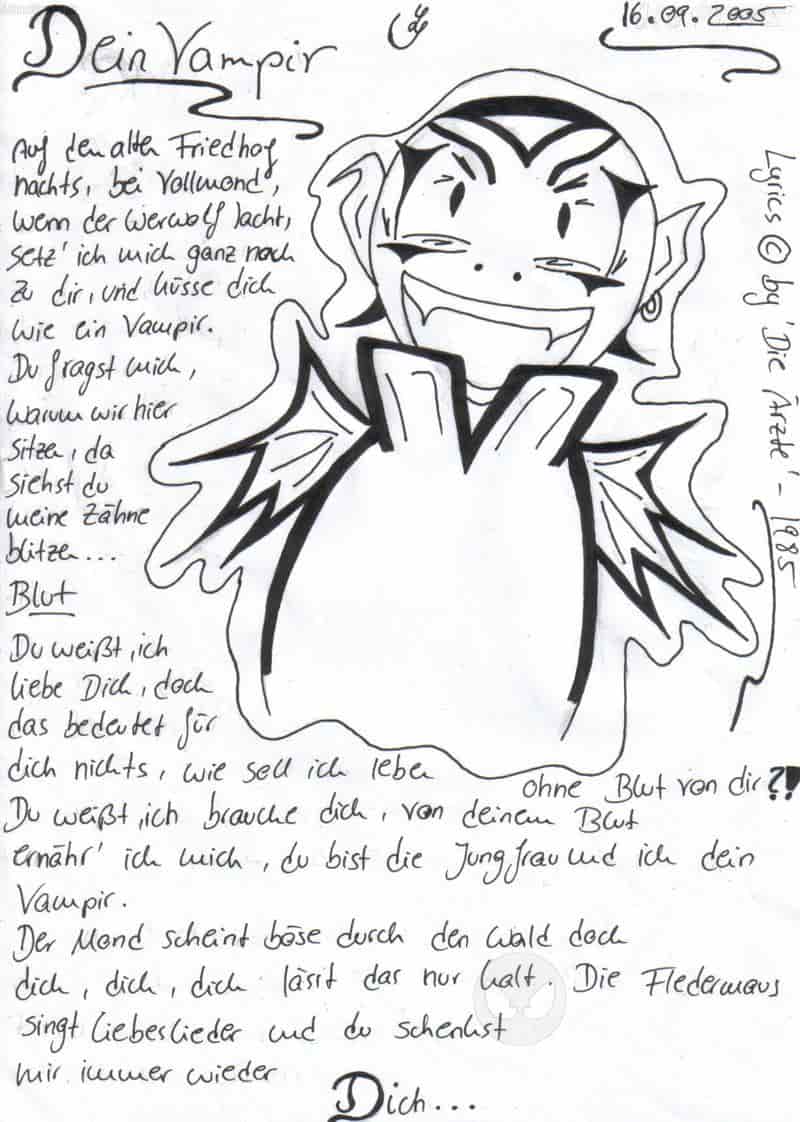 Dein Vampir
16.09.2005
Auf den alten Friedhof
nachts, bei Vollmond,
wenn der Werwolf lacht,
setz' ich mich ganz nach
zu dir, und küsse dich
wie ein Vampir.
Du fragst mich,
warum wir hier
sitzen, da
siehst du
meine Zähne
blitzen...
Blut
Du weißt, ich
liebe Dich, doch
das bedeutet für
dich nichts, wie soll ich leben
ohne Blut von dir?!
Du weißt, ich brauche dich, von deinem Blut
ernähr' ich mich, du bist die Jungfrau und ich dein
Vampir.
Der Mond scheint böse durch den Wald doch
dich, dich, dich lässt das nur kalt. Die Fledermaus
singt Liebeslieder und du schenkst
mir immer wieder
Dich...
Lyrics © by 'Die Ärzte' - 1985